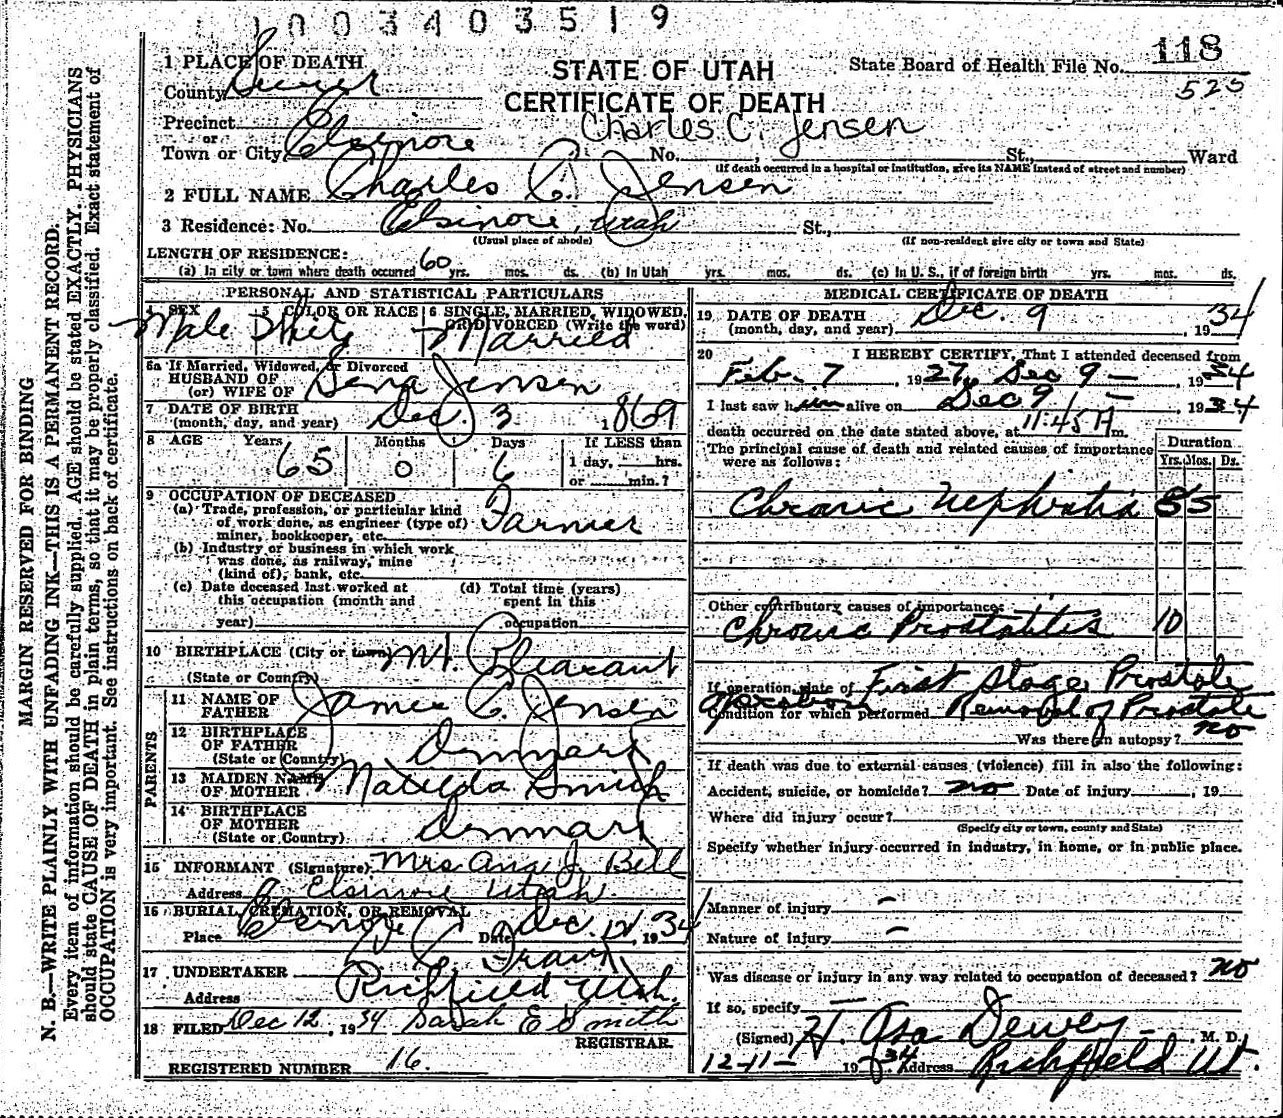 1003403519
118
525
STATE OF UTAH
CERTIFICATE OF DEATH
State Board of Health File No.
1 PLACE OF DEATH
County Sevier
Precinct
or
Town or City Elsinore
Charles C. Jensen
No. , St., Ward
(If death occurred in a hospital or institution, give its NAME instead of street and number)
2 FULL NAME Charles C. Jensen
3 Residence: No. Elsinore, Utah St.,
(Usual place of abode) (If non-resident give city or town and State)
LENGTH OF RESIDENCE:
(a) In city or town where death occurred 60 yrs. mos. ds. (b) In Utah yrs. mos. ds. (c) In U. S., if of foreign birth yrs. mos. ds.
PERSONAL AND STATISTICAL PARTICULARS
4 SEX 5 COLOR OR RACE 6 SINGLE, MARRIED, WIDOWED, OR DIVORCED (Write the word)
Male White Married
6a If Married, Widowed, or Divorced
HUSBAND OF
(or) WIFE OF Sena Jensen
7 DATE OF BIRTH
(month, day, and year) Dec. 3 1869
8 AGE Years Months Days If LESS than
65 0 6 1 day, hrs.
or min.?
9 OCCUPATION OF DECEASED
(a) Trade, profession, or particular kind
of work done, as engineer (type of)
miner, bookkeeper, etc. Farmer
(b) Industry or business in which work
was done, as railway, mine
(kind of), bank, etc.
(c) Date deceased last worked at
this occupation (month and
year)
(d) Total time (years)
spent in this
occupation
10 BIRTHPLACE (City or town) Mt. Pleasant
(State or Country)
PARENTS
11 NAME OF
FATHER James C. Jensen
12 BIRTHPLACE
OF FATHER
(State or Country) Denmark
13 MAIDEN NAME
OF MOTHER Matilda Smith
14 BIRTHPLACE
OF MOTHER
(State or Country) Denmark
15 INFORMANT (Signature) Mrs J. Bell
Address Elsinore Utah
16 BURIAL, CREMATION, OR REMOVAL
Place Elsinore Date Dec. 12 1934
17 UNDERTAKER
Address Richfield Utah.
18 FILED Dec 12, 1934 Sarah E Smith
REGISTRAR.
REGISTERED NUMBER 16.
MEDICAL CERTIFICATE OF DEATH
19 DATE OF DEATH
(month, day, and year) Dec. 9, 1934
20 I HEREBY CERTIFY, That I attended deceased from
Feb. 7, 1927, Dec 9 — , 1934
I last saw him alive on Dec 9 — 1934
death occurred on the date stated above, at 11:45 A m.
The principal cause of death and related causes of importance
were as follows:
Duration
Yrs. Mos. Ds.
Chronic Nephritis 8 5
Other contributory causes of importance:
Chronic Prostatites 10
If operation, date of First Stage Prostate
Condition for which performed Removal of Prostate
Was there an autopsy? no
If death was due to external causes (violence) fill in also the following:
Accident, suicide, or homicide? no Date of injury , 19
Where did injury occur?
(Specify city or town, county and State)
Specify whether injury occurred in industry, in home, or in public place.
Manner of injury –
Nature of injury –
Was disease or injury in any way related to occupation of deceased? no
If so, specify —
(Signed) H. Asa Dewey , M. D.
12-11- 1934 Address Richfield Ut.
MARGIN RESERVED FOR BINDING
N. B.—WRITE PLAINLY WITH UNFADING INK—THIS IS A PERMANENT RECORD.
Every item of information should be carefully supplied. AGE should be stated EXACTLY. PHYSICIANS
should state CAUSE OF DEATH in plain terms, so that it may be properly classified. Exact statement of
OCCUPATION is very important. See instructions on back of certificate.